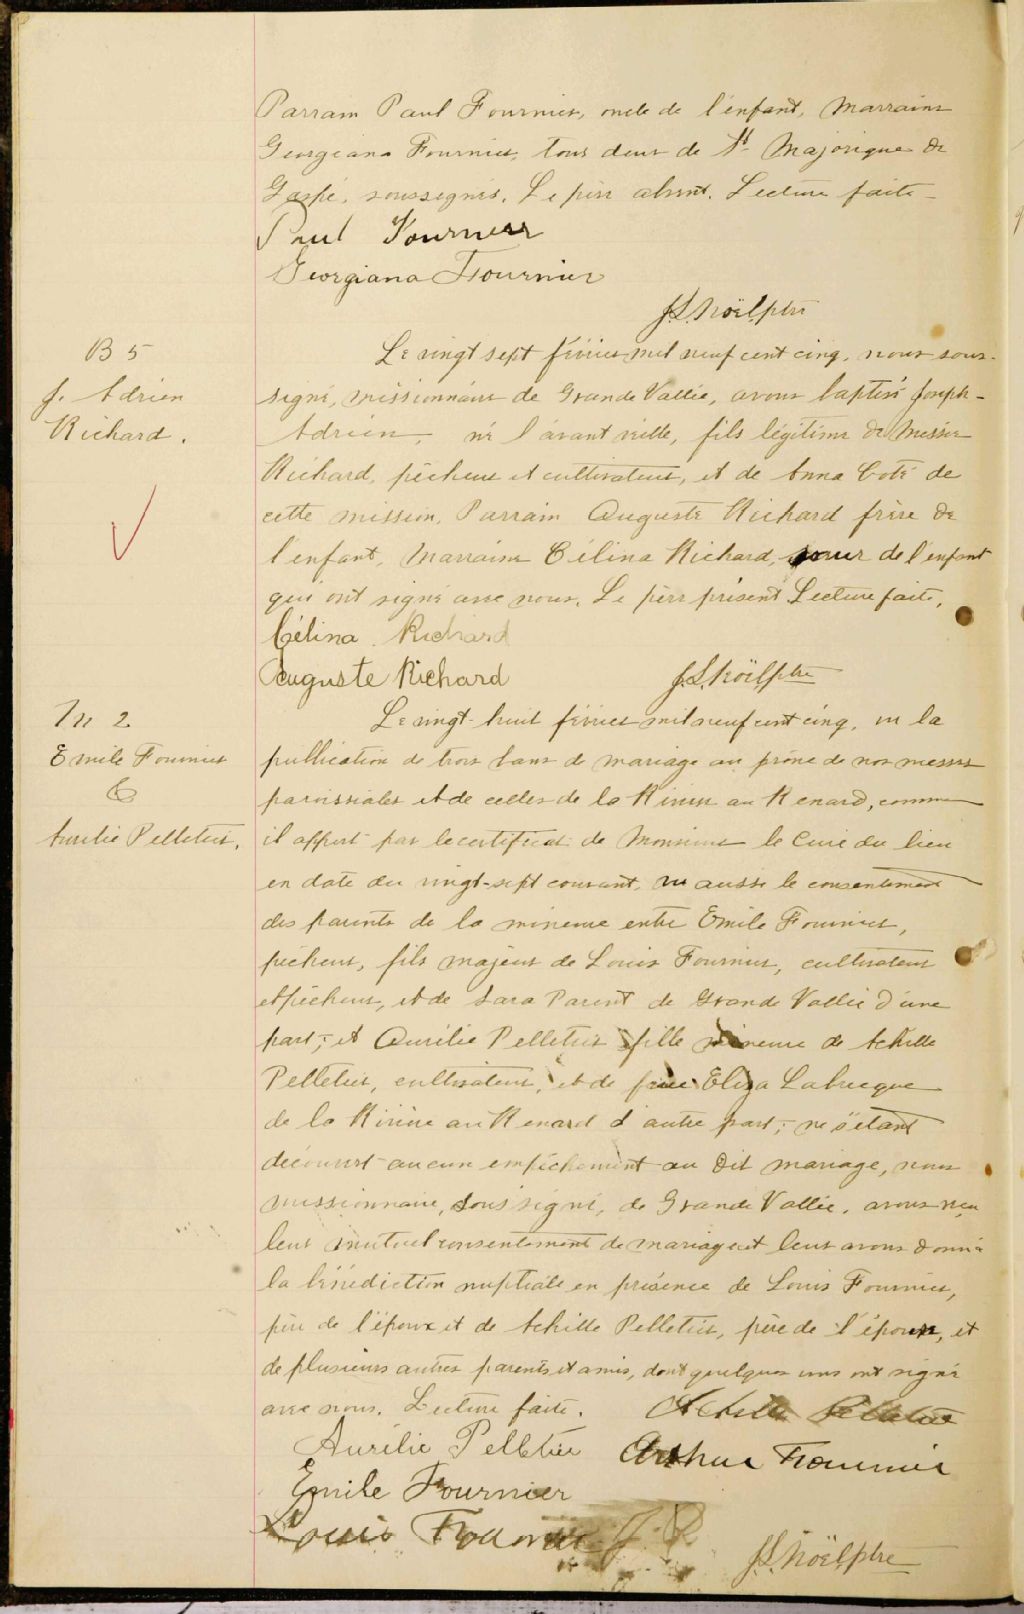 Parrain Paul Fournier, oncle de l'enfant, Marraine
Georgiana Fournier, tous deux de St Majorique de
Gaspé, soussignés. Le père absent. Lecture faite_
Paul Fournier
Georgiana Fournier
J.L. Noël, ptre
B 5
J. Adrien
Richard.
Le vingt sept février mil neuf cent cinq, nous sous-
signé, missionnaire de Grande Vallée, avons baptisé Joseph-
Adrien, né l'avant veille, fils légitime de Messie
Richard, pêcheur et cultivateur, et de Anna Coté de
cette mission. Parrain Auguste Richard frère de
l'enfant, Marraine Célina Richard, sœur de l'enfant
qui ont signé avec nous. Le père présent Lecture faite.
Célina Richard
Auguste Richard
J.L. Noël, ptre
M 2
Emile Fournier
&
Aurélie Pelletier.
Le vingt-huit février mil neuf cent cinq, vu la
publication de trois bans de mariage au prône de nos messes
paroissiales et de celles de la Rivière au Renard, comme
il appert par le certificat de Monsieur le Curé du lieu
en date du vingt-sept courant, vu aussi le consentement
des parents de la mineure entre Emile Fournier,
pêcheur, fils majeur de Louis Fournier, cultivateur
et pêcheur, et de Sara Parent de Grande Vallée d'une
part; et Aurélie Pelletier fille mineure de Achille
Pelletier, cultivateur, et de feue Eliza Labrecque
de la Rivière au Renard d'autre part; ne s'étant
découvert aucun empêchement au dit mariage, nous
missionnaire, soussigné, de Grande Vallée, avons reçu
leur mutuel consentement de mariage et leur avons donné
la bénédiction nuptiale en présence de Louis Fournier,
père de l'époux et de Achille Pelletier, père de l'épouse, et
de plusieurs autres parents et amis, dont quelques uns ont signé
avec nous. Lecture faite.
Achille Pelletier
Aurélie Pelletier
Arthur Fournier
Emile Fournier
Louis Fournier J. P.
J.L. Noël, ptre